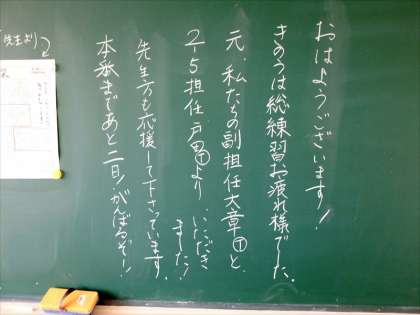 おはようございます!
きのうは総練習お疲れ様でした。
元、私たちの副担任大章Ⓣと、
2-5担任、戸男Ⓣより
いただき
ました!
先生方も応援して下さっています。
本番まであと二日!がんばるぞ!!
先生より